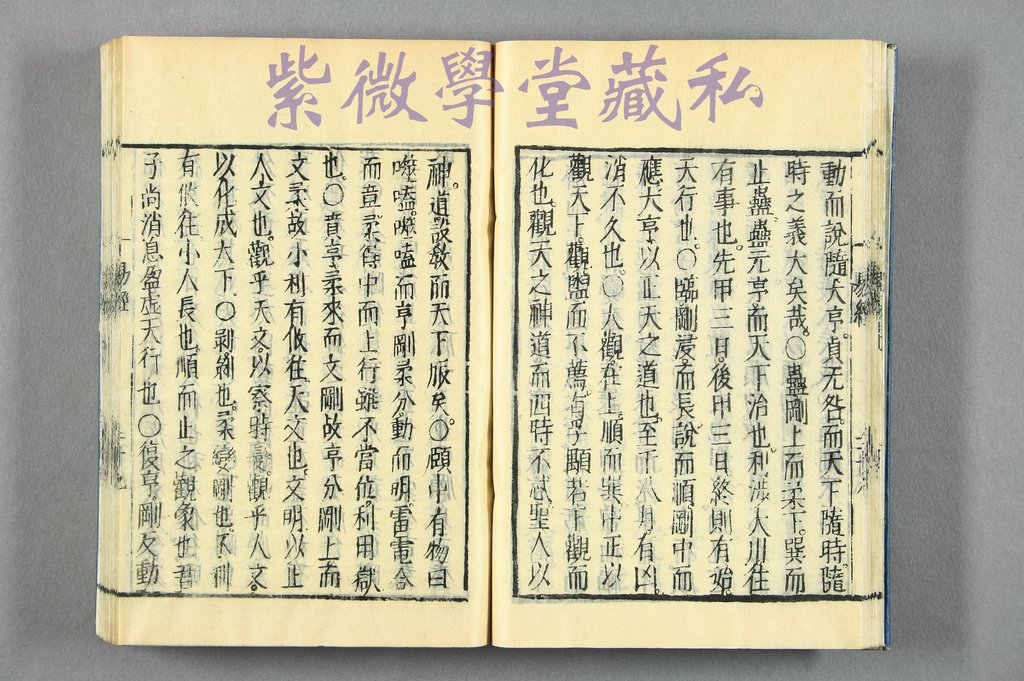 紫微學堂藏私
動而說隨大亨貞无咎而天下隨時隨
時之義大矣哉〇蠱剛上而柔下巽而
止蠱蠱元亨而天下治也利涉大川往
有事也先甲三日後甲三日終則有始
天行也〇臨剛浸而長說而順剛中而
應大亨以正天之道也至于八月有凶
消不久也〇大觀在上順而巽中正以
觀天下觀盥而不薦有孚顒若下觀而
化也觀天之神道而四時不忒聖人以
易經
神道設教而天下服矣〇頤中有物曰
噬嗑噬嗑而亨剛柔分動而明雷電合
而章柔得中而上行雖不當位利用獄
也〇賁亨柔來而文剛故亨分剛上而
文柔故小利有攸往天文也文明以止
人文也觀乎天文以察時變觀乎人文
以化成天下〇剥剥也柔變剛也不利
有攸往小人長也順而止之觀象也君
子尚消息盈虛天行也〇復亨剛反動
易經